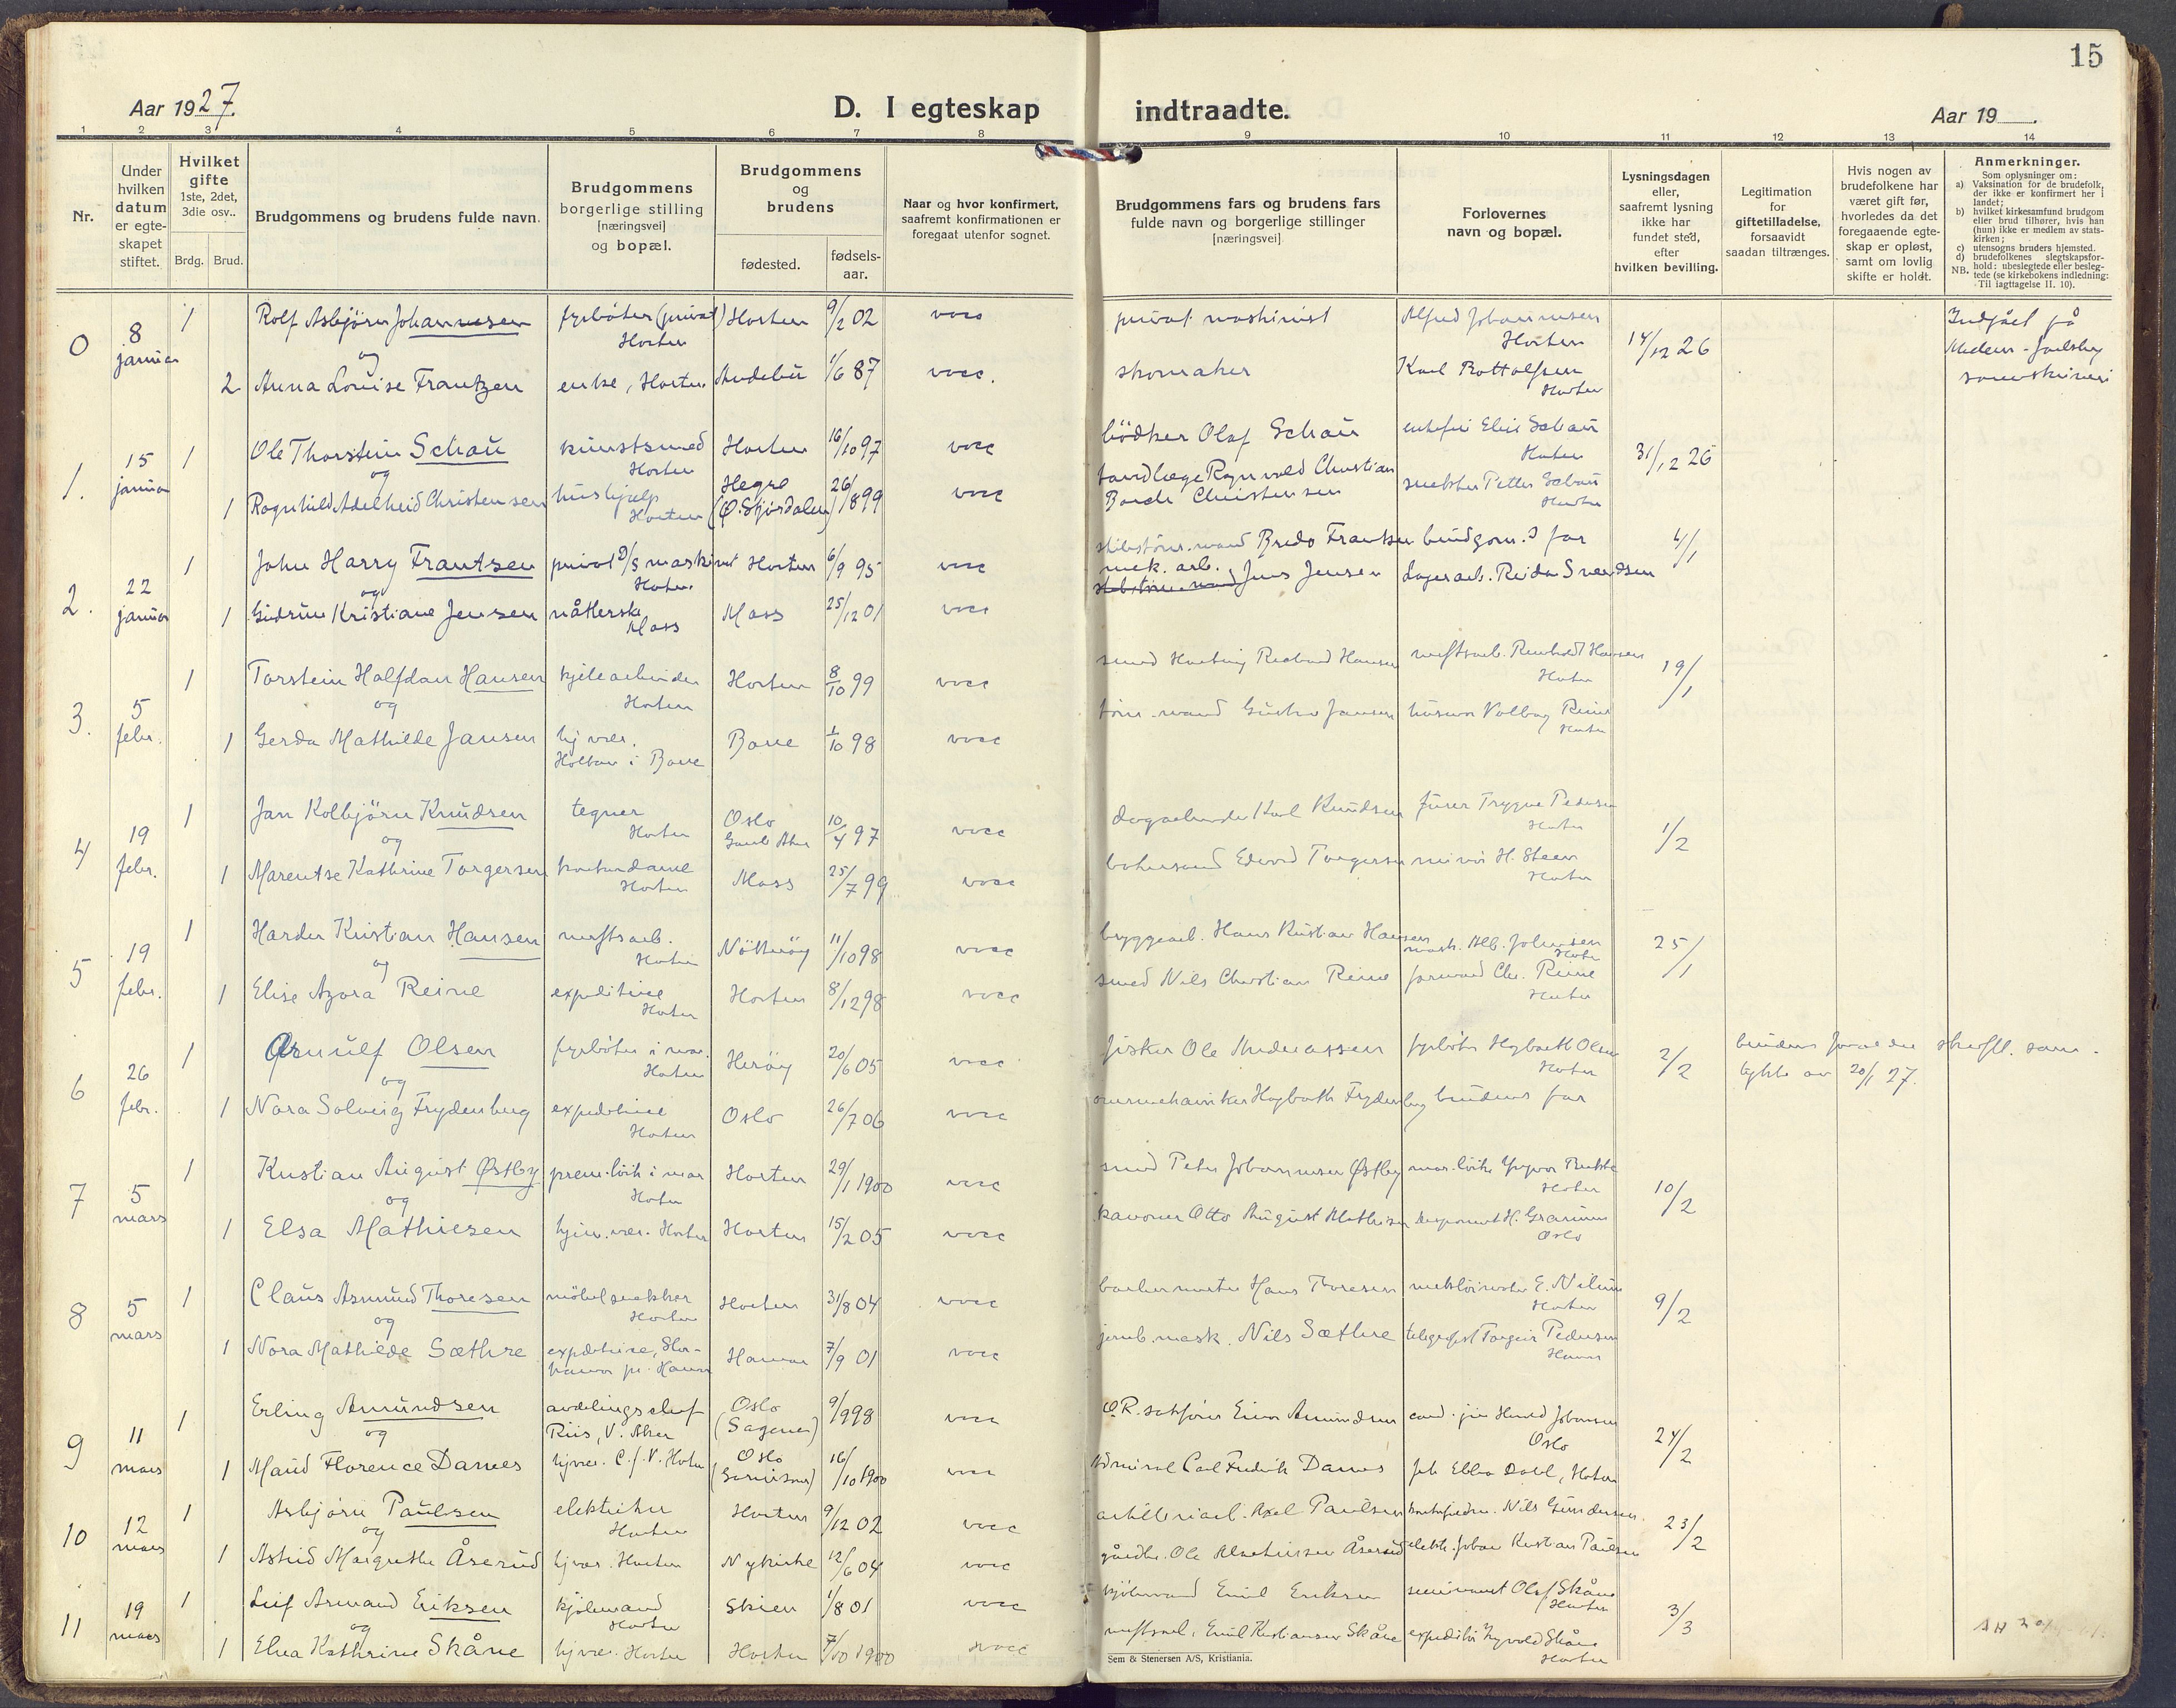 15
Aar 1927.
D. I egteskap indtraadte.
Aar 19
1 2 3 4 5 6 7 8 9 10 11 12 13 14
Nr.
Under hvilken datum er egte-skapet stiftet.
Hvilket gifte 1ste, 2det, 3die osv..
Brdg. Brud.
Brudgommens og brudens fulde navn.
Brudgommens borgerlige stilling [næringsvei] og bopæl.
Brudgommens og brudens
fødested. fødsels-aar.
Naar og hvor konfirmert, saafremt konfirmationen er foregaat utenfor sognet.
Brudgommens fars og brudens fars fulde navn og borgerlige stillinger [næringsvei]
Forlovernes navn og bopæl.
Lysningsdagen eller, saafremt lysning ikke har fundet sted, efter hvilken bevilling.
Legitimation for giftetilladelse, forsaavidt saadan tiltrænges.
Hvis nogen av brudefolkene har været gift før, hvorledes da det foregaaende egte-skap er opløst, samt om lovlig skifte er holdt.
Anmerkninger.
Som oplysninger om:
a) Vaksination for de brudefolk, der ikke er konfirmert her i landet;
b) hvilket kirkesamfund brudgom eller brud tilhører, hvis han (hun) ikke er medlem av stats-kirken;
c) utensogns bruders hjemsted.
d) brudefolkenes slegtskapsfor-hold: ubeslegtede eller besleg-tede (se kirkebokens indledning: Til iagttagelse II. 10).
NB.
0 8 januar 1 Rolf Asbjörn Johannesen fyrböter (privat) Horten Horten 9/2 02 vacc privat maskinist Alfred Johannesen Horten 14/12 26 Indgået på
og
2 Anna Louise Frantzen enke, Horten Andebu 1/6 87 vacc. skomaker Karl Rottolfsen Horten
1. 15 januar 1 Ole Thorstein Schau kunstsmed Horten Horten 16/10 97 vacc bödker Olaf Schau enkefru Elise Schau Horten 31/12 26
og
1 Ragnhild Adelheid Christensen hushjælp Horten Hegra (Ø. Stjørdalen) 26/8 99 vacc tandlæge Ragnvald Christian Christensen Petter Schau Horten
2. 22 januar 1 John Harry Frantsen privat D/S maskinist Horten Horten 6/9 95 vacc Bredo Frantsen brudgom.s far 4/1
og
1 Gudrun Kristiane Jensen nåtlerske Moss Moss 25/12 01 vacc mek. arb. Jens Jensen Lagerarb. Reidar Svendsen
3. 5 febr. 1 Torstein Halfdan Hansen kjelearbeider Horten Horten 8/10 99 vacc smed Hansen verftsarb. Reinholdt Hansen Horten 19/1
og
1 Gerda Mathilde Jansen hj. vær. i Borre Borre 1/10 98 vacc Jansen Horten
4 19 febr. 1 Jan Kolbjörn Knudsen tegner Horten Oslo 10/4 97 vacc Karl Knudsen Trygve Pedersen Horten 1/2
og
1 Marentse Kathrine Torgersen kontordame Horten Moss 25/7 99 vacc Edvard Torgersen H. Steen Horten
5 19 febr. 1 Harder Kristian Hansen verftsarb. Horten Nötteröy 11/10 98 vacc bryggearb. Hans Kristian Hansen Alb. Johansen Horten 25/1
og
1 Elise Azora Reine expeditrice Horten Horten 8/12 98 vacc smed Nils Christian Reine formand Chr. Reine Horten
6 26 febr. 1 Ørnulf Olsen fyrböter i mar. Horten Heröy 20/6 05 vacc fisker Ole Andreassen fyrböter Olsen Horten 2/2 brudens foreldre skriftl. sam-
og
1 Nora Solveig Frydenberg expeditrice Horten Oslo 26/7 06 vacc Frydenberg brudens far tykke av 20/1 27.
7 5 mars 1 Kristian August Østby prem. löit. i mar Horten Horten 29/1 1900 vacc smed Peter Johannesen Østby Horten 10/2
og
1 Elsa Mathiesen hjem. vær. Horten Horten 15/2 05 vacc kanoner Otto August Mathiesen Oslo
8 5 mars 1 Claus Asmund Thoresen möbelsnekker Horten Horten 31/8 04 vacc Hans Thoresen E. Nilsen Horten 9/2
og
1 Nora Mathilde Sæthre expeditrice, Hamar 7/9 01 vacc jernb. mask. Nils Sæthre Torgeir Pedersen Hamar
9 11 mars 1 Erling Amundsen avdelingschef Riis, V. Aker Oslo (Sagene) 9/9 98 vacc Einar Amundsen cand. jur. Harald Johansen Oslo 24/2
og
1 Maud Florence Danes hj. vær. Horten Oslo (Garnisons) 16/10 1900 vacc Admiral Carl Fredrik Danes Ebba Dahl, Horten
10 12 mars 1 Asbjörn Paulsen elektriker Horten Horten 9/12 02 vacc artilleriarb. Axel Paulsen Nils Gundersen. 23/2
og
1 Astrid Margrethe Åserud hj. vær. Horten Nykirke 12/6 04 vacc gårdbr. Ole Åserud Johan Kristian Paulsen
11 19 mars 1 Leif Armand Eriksen Horten Skien 1/8 01 vacc Emil Eriksen Olaf Skåne Horten 3/3
og
1 Elna Kathrine Skåne hj. vær. Horten Horten 7/10 1900 vacc verftsarb. Emil Kristiansen Skåne expeditör Skåne Horten
Sem & Stenersen A/S, Kristiania.